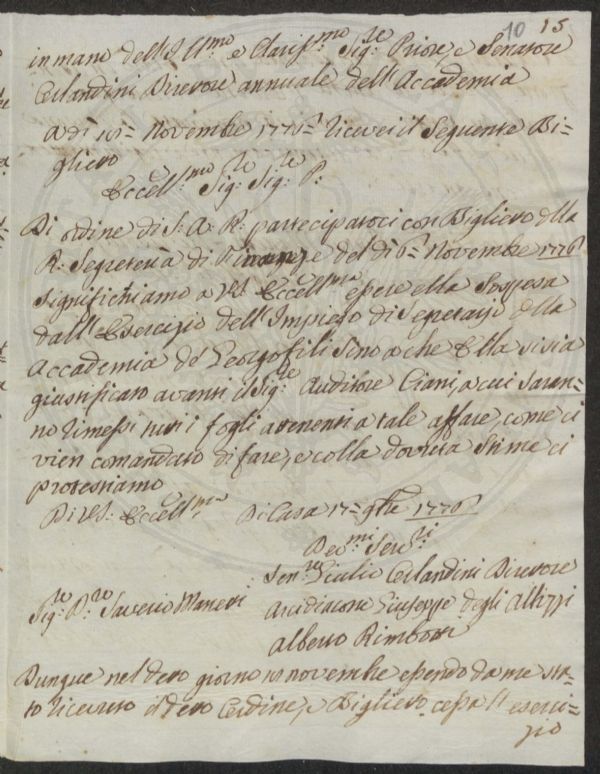 10 15
in mano dell'Ill:mo e Clariss:mo Sig:re Priore, e Senatore
Orlandini Direttore annuale dell'Accademia
A dì Novembre 1776 ricevei il Seguente Bi=
glietto
Eccell:mo Sig:re Sig:re P:
Di ordine di S: A: R: partecipatoci con Biglietto della
R: Segreteria di Finanze del dì 6 Novembre 1776
significhiamo a VS: Eccell:ma essere ella Sospesa
dall'Esercizio dell'Impiego di Segretario della
Accademia de Georgofili sino a che Ella si sia
giustificato avanti il Sig:re Auditore Ciani, a cui saran=
no rimessi tutti i fogli attenenti a tale affare, come ci
vien comandato di fare, e colla dovuta Stima ci
protestiamo
Di VS: Eccell:ma Di Casa 9bre 1776
Dev:mi Serv:ri
Sen:re Giulio Orlandini Direttore
Sig:re D:re Saverio Manetti Arcidiacono Giuseppe degli Albizzi
Alberto Rimbotti
Dunque nel detto giorno novembre essendo da me sta=
to ricevuto il detto Ordine, e Biglietto cessa l'eserci=
zio